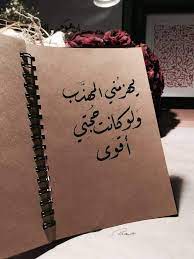 يهزمُني المهذّب
ولو كانت حجتي
أقوى